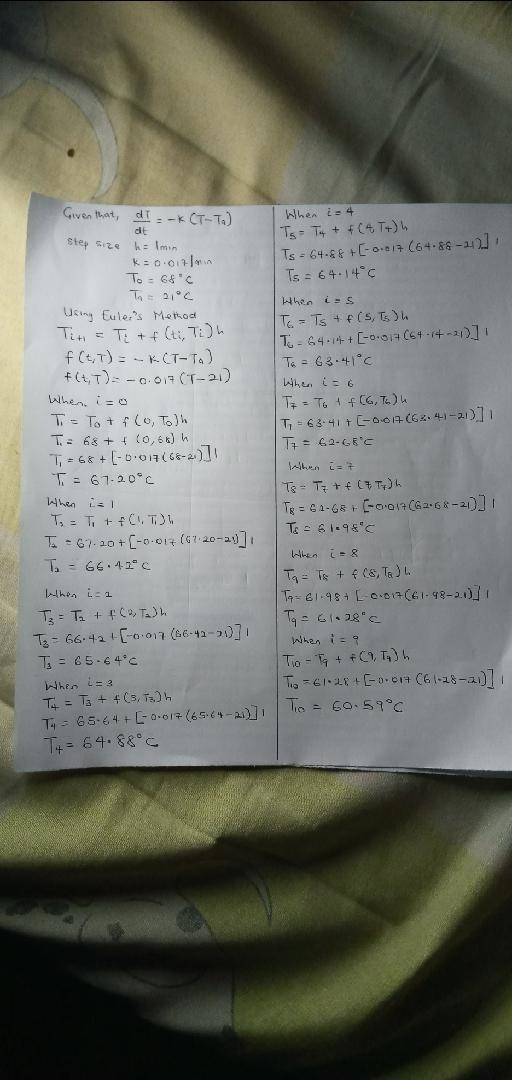 Given that, dT/dt = -K (T-Ta)
Step size h = 1min
K = 0.017/min
T0 = 68°C
Ta = 21°C
Using Euler's Method
Ti+1 = Ti + f (ti, Ti) h
f (t,T) = -K(T-Ta)
f(t,T) = -0.017 (T-21)
When i = 0
T1 = T0 + f (0, T0) h
T1 = 68 + f (0,68) h
T1 = 68 + [-0.017(68-21)] 1
T1 = 67.20°C
When i = 1
T2 = T1 + f (1, T1) h
T2 = 67.20 + [-0.017 (67.20-21)] 1
T2 = 66.42°C
When i = 2
T3 = T2 + f (2, T2) h
T3 = 66.42 + [-0.017 (66.42-21)] 1
T3 = 65.64°C
When i = 3
T4 = T3 + f (3, T3) h
T4 = 65.64 + [-0.017 (65.64-21)] 1
T4 = 64.88°C
When i = 4
T5 = T4 + f (4, T4) h
T5 = 64.88 + [-0.017 (64.88-21)] 1
T5 = 64.14°C
When i = 5
T6 = T5 + f (5, T5) h
T6 = 64.14 + [-0.017 (64.14-21)] 1
T6 = 63.41°C
When i = 6
T7 = T6 + f (6, T6) h
T7 = 63.41 + [-0.017 (63.41-21)] 1
T7 = 62.68°C
When i = 7
T8 = T7 + f (7, T7) h
T8 = 62.68 + [-0.017(62.68-21)] 1
T8 = 61.98°C
When i = 8
T9 = T8 + f (8, T8) h
T9 = 61.98 + [-0.017 (61.98-21)] 1
T9 = 61.28°C
When i = 9
T10 = T9 + f (9, T9) h
T10 = 61.28 + [-0.017 (61.28-21)] 1
T10 = 60.59°C